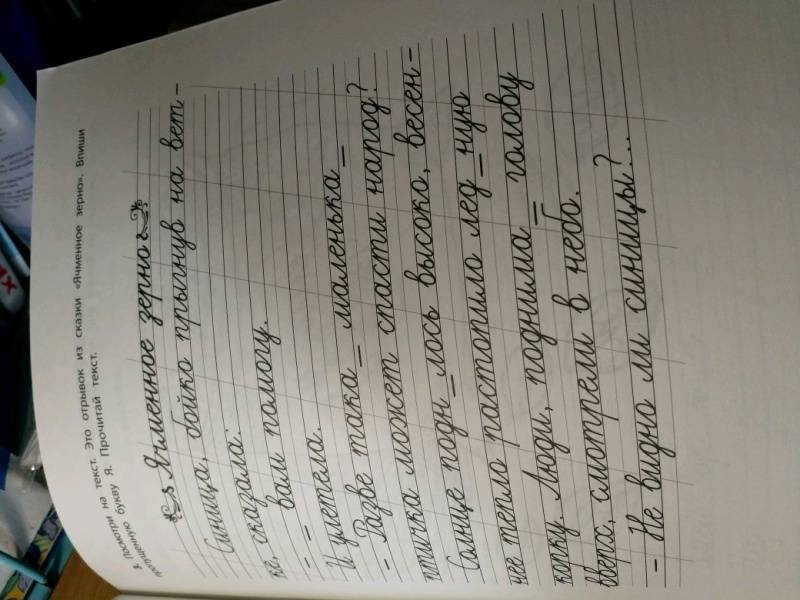 3. Посмотри на текст. Это отрывок из сказки «Ячменное зерно». Впиши
пропущенную букву Я. Прочитай текст.
Ячменное зерно
Синица, бойко прыгнув на вет-
ке, сказала:
– _ вам помогу.
И улетела.
– Разве така_ маленька_
птичка может спасти народ?
Солнце подн_лось высоко, весен-
нее тепло растопило лед_ную
корку. Люди, поднима_ голову
вверх, смотрели в небо.
– Не видно ли синицы?...